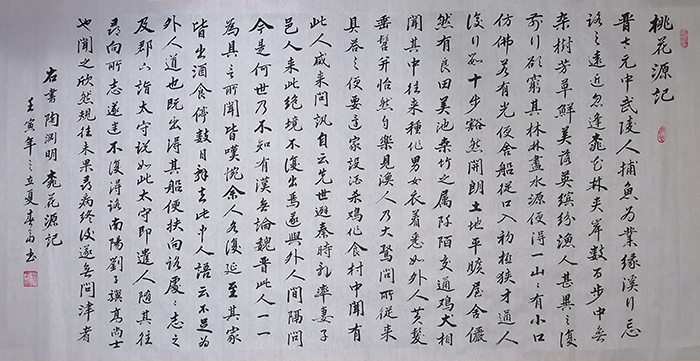 桃花源記
晉太元中武陵人捕魚為業緣溪行忘
路之遠近忽逢桃花林夾岸數百步中無
雜樹芳草鮮美落英繽紛漁人甚異之復
前行欲窮其林林盡水源便得一山山有小口
仿佛若有光便舍船從口入初極狹才通人
復行數十步豁然開朗土地平曠屋舍儼
然有良田美池桑竹之屬阡陌交通鸡犬相
聞其中往來種作男女衣着悉如外人黄髮
垂髫并怡然自樂見漁人乃大驚問所從来
具答之便要還家設酒杀鸡作食村中聞有
此人咸來問訊自云先世避秦時亂率妻子
邑人來此絕境不復出焉遂與外人間隔問
今是何世乃不知有漢無論魏晉此人一一
為具言所聞皆嘆惋余人各復延至其家
皆出酒食停數日辭去此中人語云不足為
外人道也既出得其船便扶向路處處志之
及郡下詣太守說如此太守即遣人隨其往
尋向所志遂迷不復得路南陽劉子驥高尚士
也聞之欣然規往未果尋病終後遂無問津者
右書陶淵明桃花源記
壬寅年之立夏書